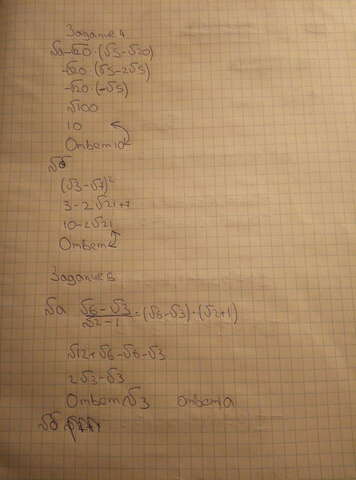 Задание 4
а -√20·(√5-√20)
-√20·(√5-2√5)
-√20·(-√5)
√100
10
Ответ 10
б
(√3-√7)²
3-2√21+7
10-2√21
Ответ
Задание 5
а √6-√3/√2-1=(√6-√3)·(√2+1)
√12+√6-√6-√3
2√3-√3
Ответ √3 ответ а
б